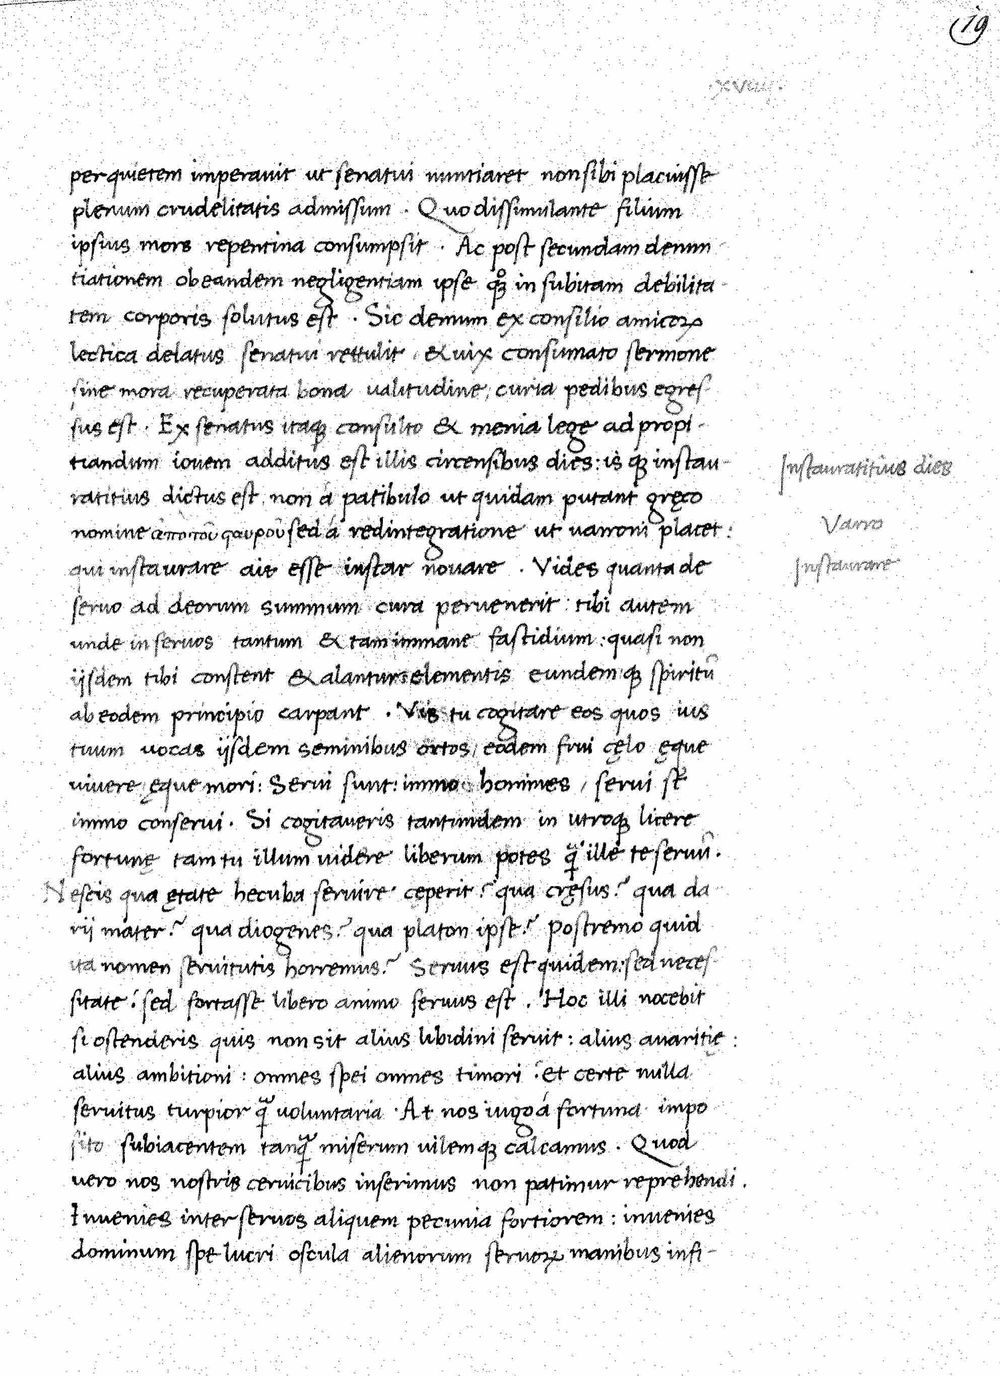 19
.xviiij.
per quietem imperauit ut senatui nuntiaret non sibi placuisse
plenum crudelitatis admissum . Quo dissimulante filium
ipsius mors repentina consumpsit . Ac post secundam denun
tiationem ob eandem negligentiam ipse qͦꝫ in subitam debilita-
tem corporis solutus est . Sic demum ex consilio amicoꝝ
lectica delatus senatui rettulit , & uix consumato sermone
sine mora recuperata bona ualitudine, curia pedibus egres-
sus est . Ex senatus itaqꝫ consulto & menia lege ad propi-
tiandum iouem additus est illis circensibus dies: is qꝫ instau-
ratitius dictus est, non á patibulo ut quidam putant gręco
nomine ἀπὸ τοῦ σταυροῦ sed á redintegratione ut varroni placet :
qui instaurare ait esse instar nouare . Vides quanta de
seruo ad deorum summum cura peruenerit : tibi autem
unde in seruos tantum & tam immane fastidium : quasi non
iisdem tibi constent & alantur elementis eundemqꝫ spiritū
ab eodem principio carpant . Vis tu cogitare eos quos ius
tuum uocas ijsdem seminibus ortos, eodem frui cęlo ęque
viuere, ęque mori: Serui sunt: immo homines , servi st̄
immo conserui . Si cogitaueris tantundem in utroqꝫ licere
fortunę tam tu illum videre liberum potes q̄ ille te seruū .
Nescis qua ętate hecuba seruire cęperit? qua cręsus? qua da-
rij mater? qua diogenes? qua platon ipse? Postremo quid
ita nomen seruitutis horremus? Seruus est quidem: sed neces-
sitate : sed fortasse libero animo seruus est . Hoc illi nocebit
si ostenderis quis non sit alius libidini seruit : alius auaritię :
alius ambitioni : omnes spei omnes timori : et certe nulla
seruitus turpior q̄ voluntaria . At nos iugo á fortuna impo
sito subiacentem tanq̄ miserum uilemqꝫ calcamus . Quod
vero nos nostris ceruicibus inserimus non patimur reprehendi .
Inuenies inter seruos aliquem pecunia fortiorem : inuenies
dominum spe lucri oscula alienorum seruoꝝ manibus infi-
Instauratitius dies
Varro
Instaurare